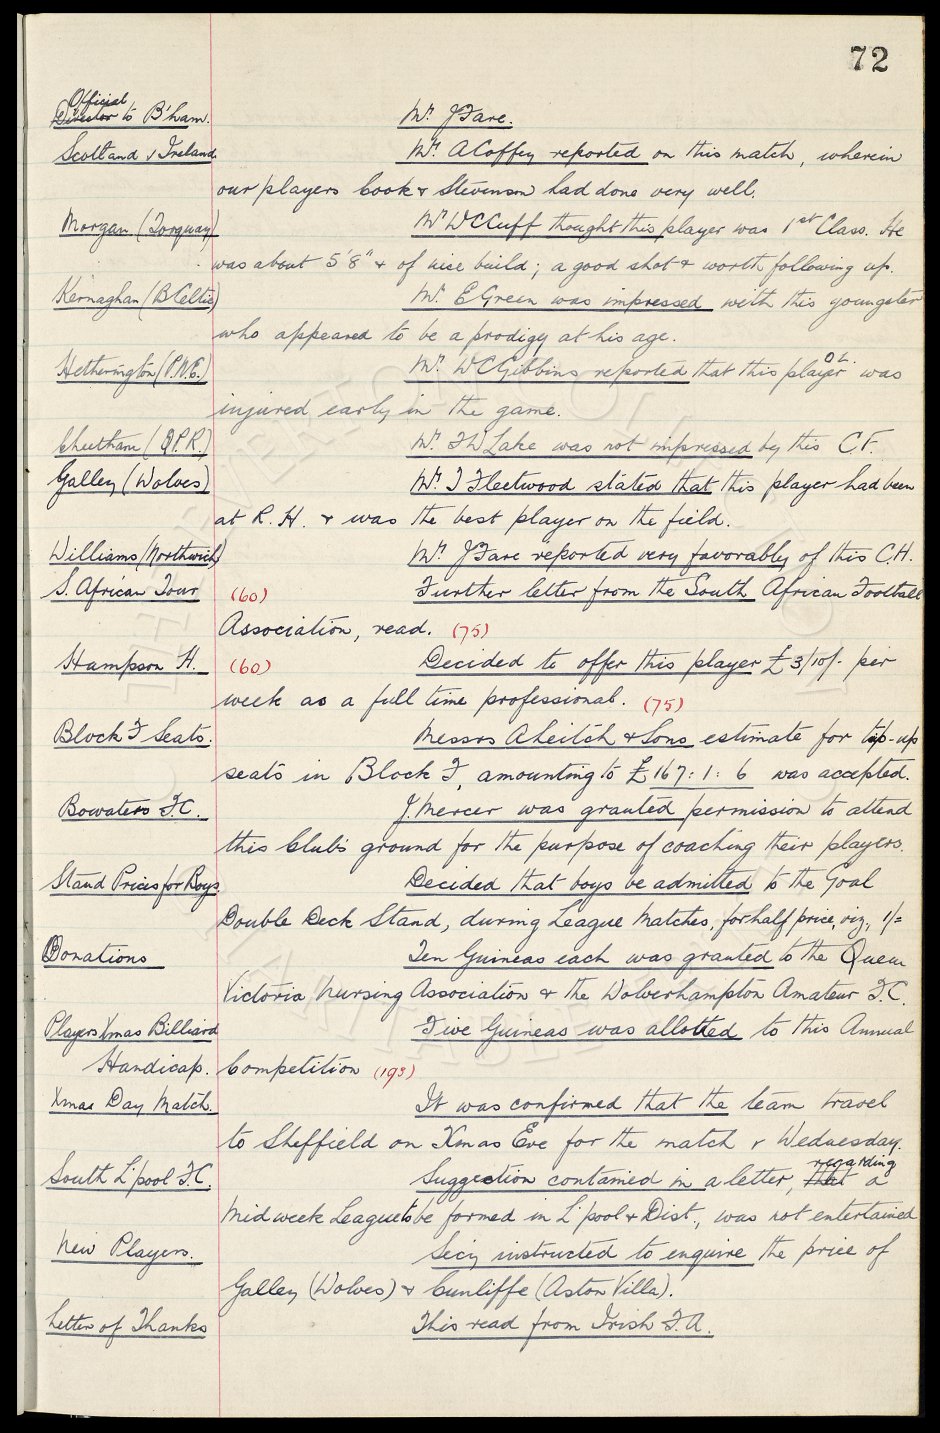 72
Official
Director to B'ham. Mr. J Fare.
Scotland v Ireland Mr. A Coffey reported on this match, wherein
our players Cook & Stevenson had done very well.
Morgan (Torquay) Mr W C Cuff thought this player was 1st Class. He
was about 5'8" & of nice build; a good shot & worth following up.
Kernaghan (B Celtic) Mr. E Green was impressed with this youngster
who appeared to be a prodigy at his age.
Hetherington (P.N.E.) Mr. W C Gibbins reported that this O.L. player was
injured early in the game.
Cheetham (Q.P.R.) Mr. F W Lake was not impressed by this C.F.
Galley (Wolves) Mr. T Fleetwood stated that this player had been
at R.H. & was the best player on the field.
Williams (Northwich) Mr. J Fare reported very favorably of this C.H.
S. African Tour (60) Further letter from the South African Football
Association, read. (75)
Hampson H. (60) Decided to offer this player £3/10/- per
week as a full time professional. (75)
Block F Seats. Messrs A Leitch & Sons estimate for tip-up
seats in Block F, amounting to £167:1:6 was accepted.
Bowaters F.C. J. Mercer was granted permission to attend
this Club's ground for the purpose of coaching their players.
Stand Prices for Boys Decided that boys be admitted to the Goal
Double Deck Stand, during League Matches, for half price, viz., 1/=
Donations Ten Guineas each was granted to the Queen
Victoria Nursing Association & the Wolverhampton Amateur F.C.
Players Xmas Billiard Five Guineas was allotted to this Annual
Handicap. Competition (193)
Xmas Day Match. It was confirmed that the team travel
to Sheffield on Xmas Eve for the match v Wednesday.
South L'pool F.C. Suggestion contained in a letter, that regarding a
Mid week League to be formed in L'pool & Dist., was not entertained
New Players. Secy instructed to enquire the price of
Galley (Wolves) & Cunliffe (Aston Villa).
Letter of Thanks This read from Irish F.A.